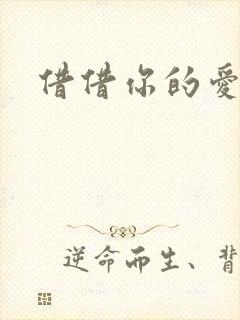 借借你的爱
逆命而生、背